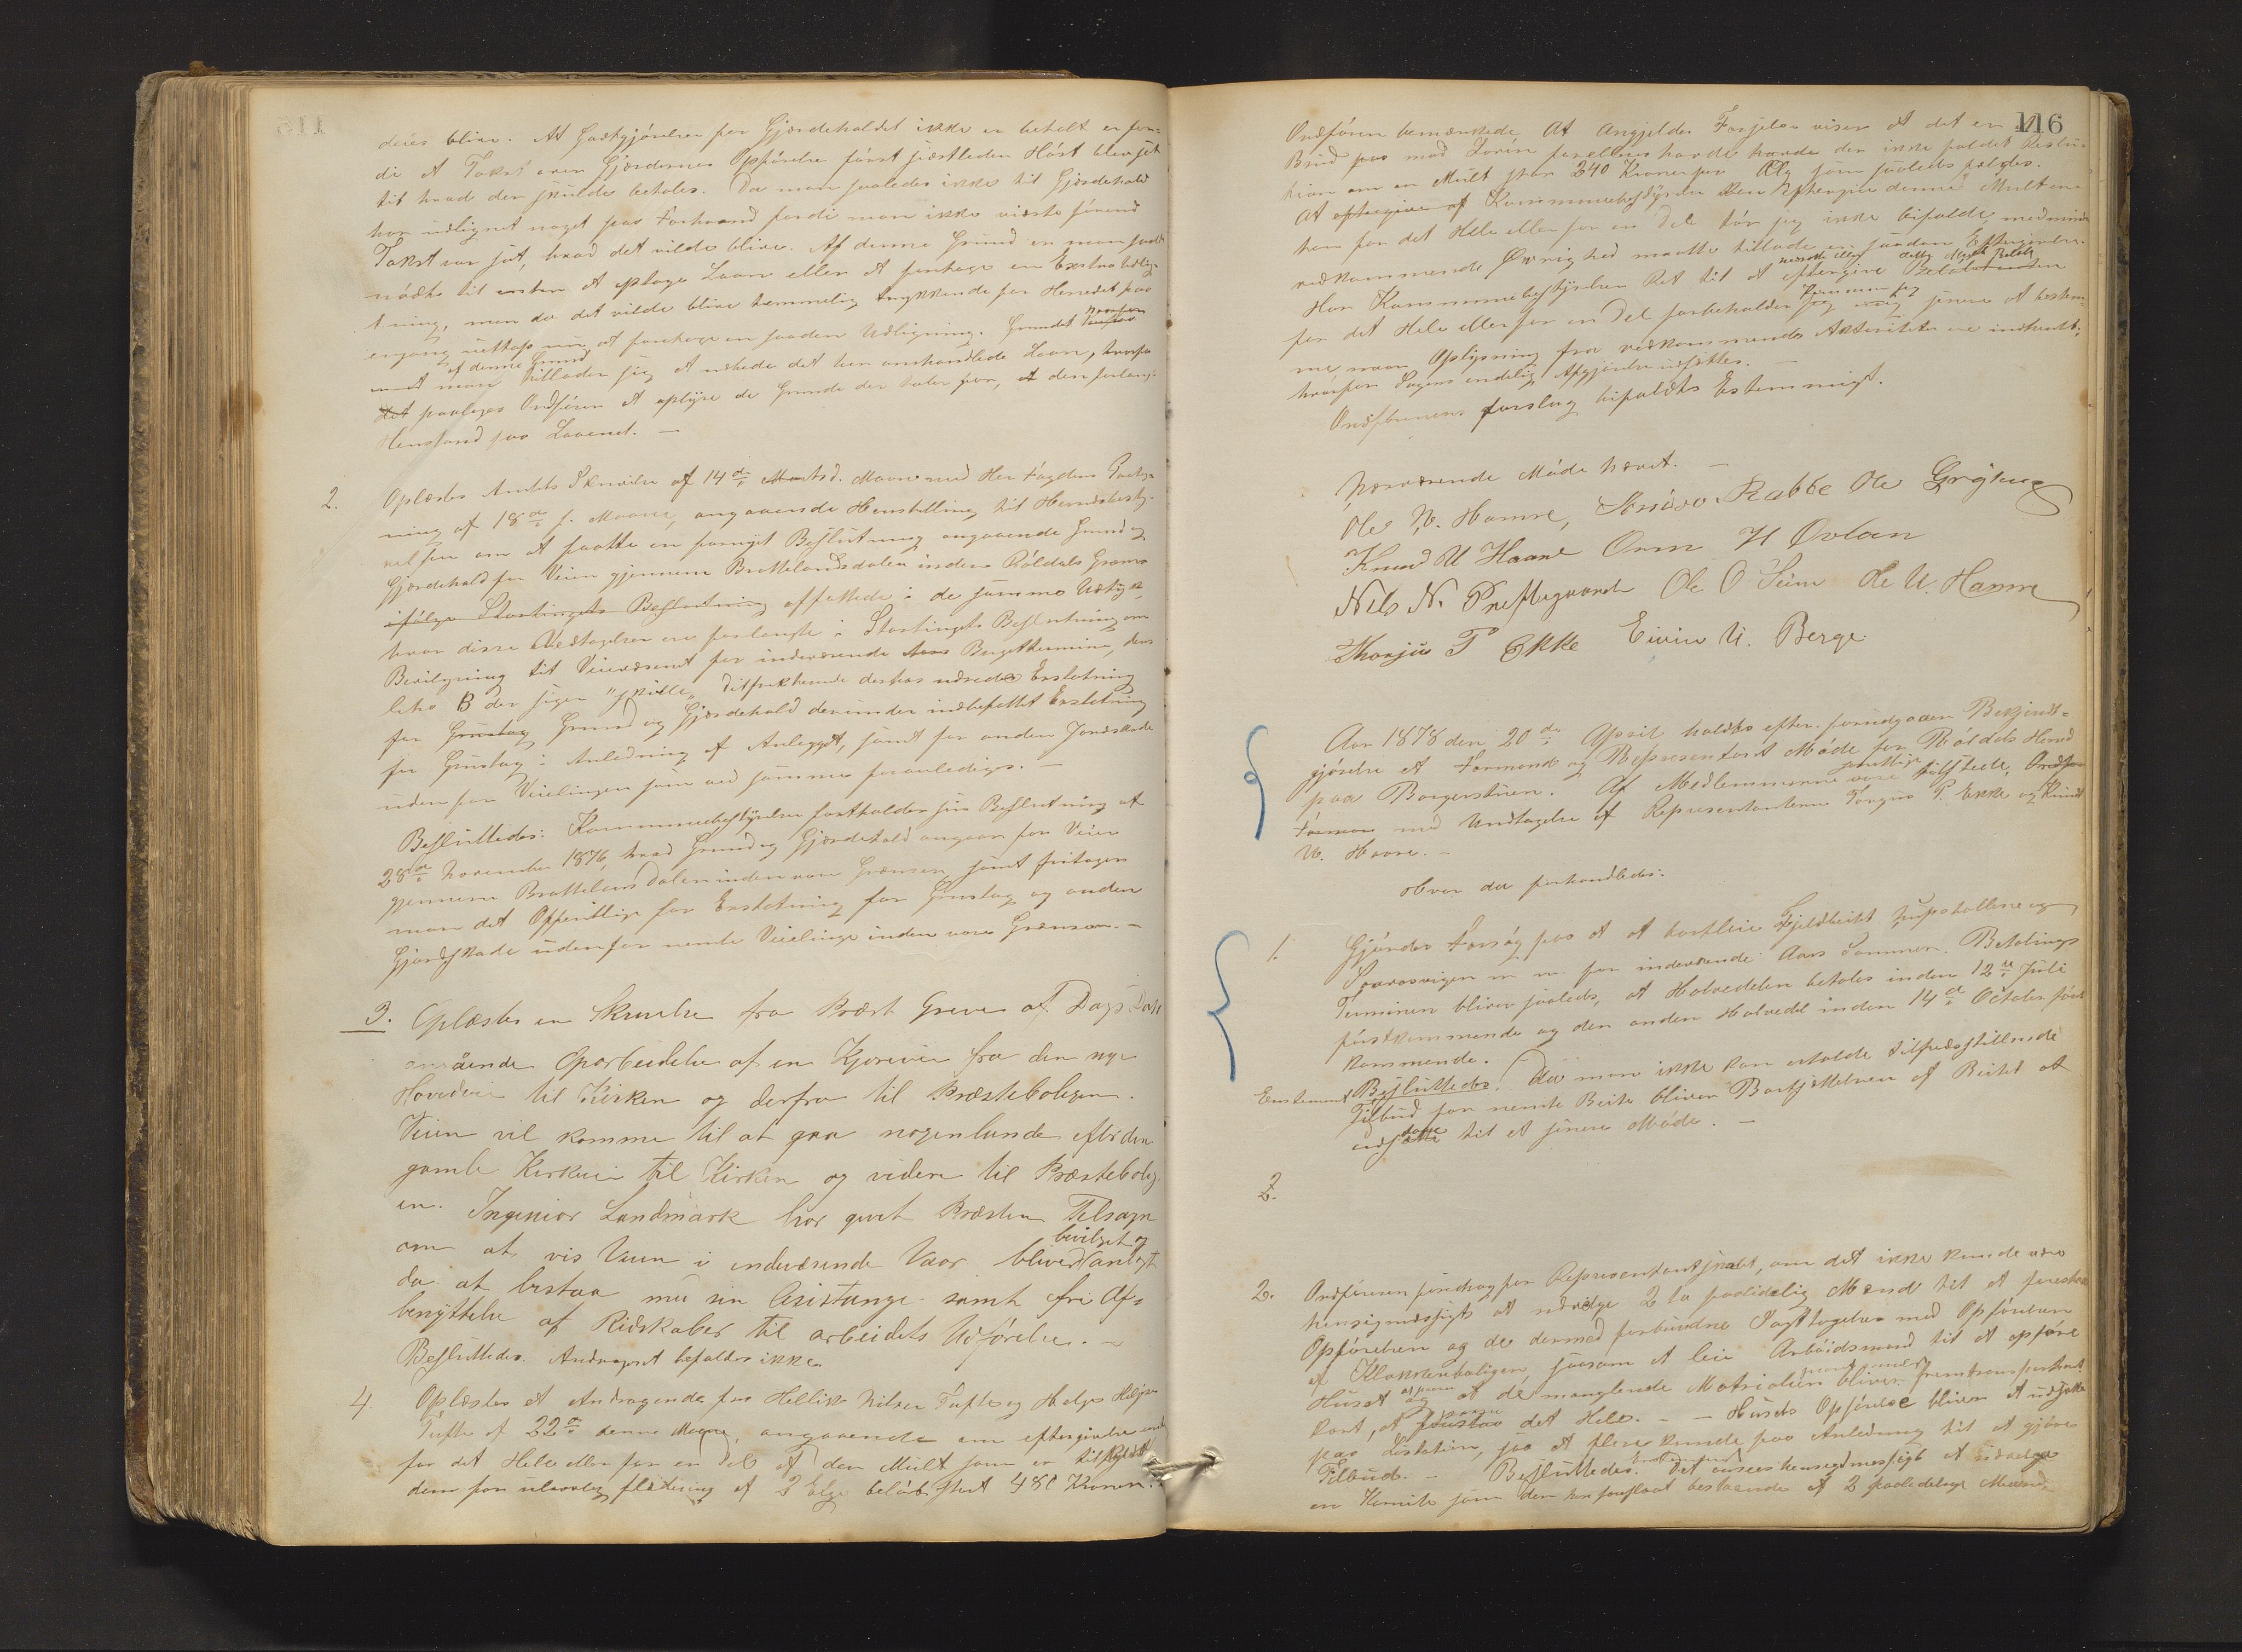 deres blive. At Godtgjörelsen for Gjærdeholdet ikke er betalt er for-
di at Takst over Gjærdernes Opförelse först sidstleden Höst blev sat
til hvad der skulde betales. Da man saaledes ikke til Gjerdehold
har udlignet noget paa Forhaand fordi man ikke vidste förend
Takst var sat, hvad det vilde blive. Af denne Grund er man saale
nödte til enten at optage Laan eller at foretage en Extra Udlig-
ning, men da det vilde blive temmelig trykkende for Herredet paa
engang at foretage en saadan Udligning. Grundet
af denne Grund
man tillader sig at udbede det her omhandlede Laan, hvorfor
det paalægges Ordfören at oplyse de Grunde der taler for, at den forlang-
Henstand paa Laanet. —
2. Oplæstes Amtets Skrivelse af 14de Marts d. Maaned med Her Fogdens Paateg-
ning af 18de s. Maaned, angaaende Henstilling til Herredsbesty-
relsen om at fatte en fornyet Beslutning angaaende Grund og
Gjærdehold for Veien gjennem Brattelandsdalen inden Röldals Grænse
ifölge Stortingets Beslutning affattede i de samme Udtryk,
hvor disse Vedtagelser ere forlangte i Stortingets Beslutning om
Bevilgning til Veivæsenet for indeværende Budgettermin, dens
litra B der siger "specielle" Distrikterne derhos udreder Erstatning
for Grustag Grund og Gjærdehold derunder indbefattet Erstatning
for Grustag i Anledning af Anlægget, samt for anden Jordskade
udenfor Veilinien som ved samme foranlediges. —
Besluttedes: Kommunebestyrelsen fastholder sin Beslutning af
28de November 1876, hvad Grund og Gjærdehold angaar for Veien
gjennem Brattelandsdalen inden vore Grænser, samt fritager
man det Offentlige for Erstatning for Grustag og anden
Gjordskade udenfor nemte Veilinge inden vore Grænser. —
3. Oplæstes en Skrivelse fra Præst Greve af Dags Dato
angående Oparbeidelse af en Kjörevei fra den nye
Hovedvei til Kirken og derfra til Præsteboligen.
Veien vil komme til at gaa nogenlunde efter den
gamle Kirkevei til Kirken og videre til Præstebolig
en. Ingeniör Landmark har givet Præsten Tilsagn
bevilget og
om at vis Veien i indeværende Vaar bliver anlagt
da at bistaa med sin Asistange samt fri Af-
benyttelse af Redskaber til arbeidets Udförelse. —
Besluttedes. Andraget bifaldes ikke.
4. Oplæstes et Andragende fra Hellik Nilsen Tufte og Helge Helgesen
Tufte af 22de denne Maaned, angaaende om eftergivelse enten
for det Hele eller for en Del af den Mult som er tilpligtet
dem for ulovlig fælding af 2 Elge beløb stort 480 Kroner.
116
Ordfören bemærkede, At angjeldes Forseelse viser at det er et
Brud paa mod Loven forellers havde havde der ikke faldet Reslu-
tion om en Mult stor 240 Kroner for Elg som saaledes fældes.
At eftergive af Kommunebestyrelsen eftergive denne Mult en-
ten for det Hele eller for en Del tör jeg ikke bifalde, medmindre
vedkommende Övrighed maatte tillade en saadan Eftergivelse.
Har Kommunebestyrelsen Ret til at eftergive
for det Hele eller for en Del forbeholder jeg mig senere at bestem-
me, naar Oplysning fra vedkommende Autoriteter ere indhentet,
hvorfor Sagens endelig Afgjörelse udsættes. —
Ordförerens forslag bifaldtes Estemmigt.
Nærværende Möde hævet. —
Ole N. Hamre, Sendre. Rabbe Ole Gryting
Knud U Haare Orm H Øvlan
Nils N. Prestegaard Ole O Seim Ole U. Hamre
Thorjus T Ekke Eivin U. Berge
Aar 1878 den 20de April holdtes efter forudgaaen Bekjendt-
gjörelse et Formand og Representant Möde for Röldals Herred
paa Borgerstuen. Af Medlemmerne vare samtlige tilstede,
med Undtagelse af Representanterne Torgius T. Ekke og Knud
U. Haare. —
hvor da forhandledes:
1. Gjördes Forsög paa at bortleie Fjeldbeitet og
m. m. for indeværende Aars Sommer. Betalings
Terminen bliver saaleds, at Halvedelen betales inden 12te Juli
förstkommende og den anden Halvedel inden 14de October först
kommende.
Enstemmigt Besluttedes: Da man ikke kan erholde tilfredsstillende
Tilbud for nemte Beite bliver Bortsættelsen af Beitet at
udsætte til et senere Möde. —
2.
2. Ordföreren foredrog for Representantskabet, om det ikke kunde være
hensigtmæssigt at udvælge 2 to paalidelig Mænd til at forestaa
Opförelsen og de dermed forbundne Iagttagelser med Opförelsen
af Klokkerboligen, saasom at leie Arbeidsmænd til at opföre
Huset og at de manglende Matrialier bliver fremtransporteret
kort, at det Hele. — Husets Opförelse bliver at udsætte
paa Lisitation, saa at flere kunde faa Anledning til at gjöre
Tilbud. — Besluttedes: Enstemmigt Det ansees hensigtmessigt at udvælge
en Komite som den her foreslaat bestaaende af 2 paalidelige Mænd,